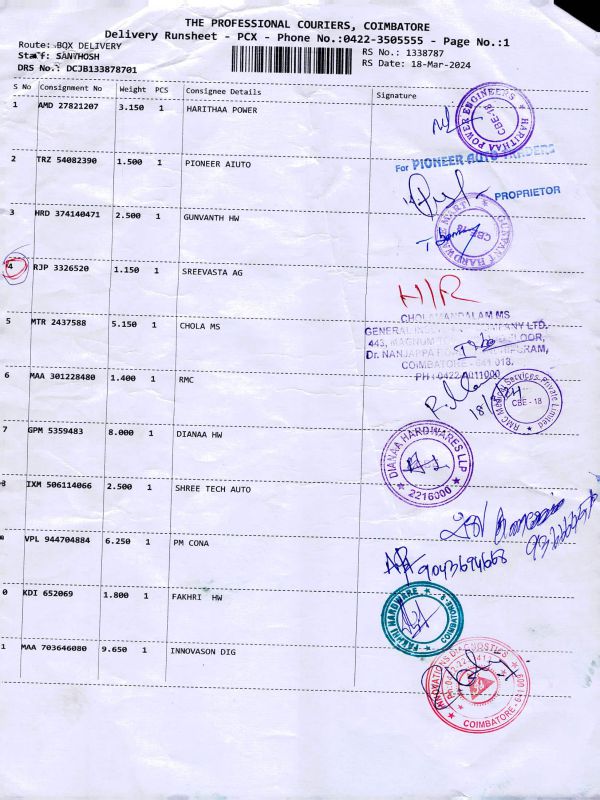 THE PROFESSIONAL COURIERS, COIMBATORE
Delivery Runsheet - PCX - Phone No.:0422-3505555 - Page No.:1
Route: BOX DELIVERY
RS No.: 1338787
Staff: SANTHOSH
RS Date: 18-Mar-2024
DRS No.: DCJB133878701
S No Consignment No Weight PCS Consignee Details Signature
1 AMD 27821207 3.150 1 HARITHAA POWER
HARITHAA POWER ENGINEERS
CBE-18
2 TRZ 54082390 1.500 1 PIONEER AIUTO
For PIONEER AUTO TRADERS
PROPRIETOR
3 HRD 374140471 2.500 1 GUNVANTH HW
HARDWARE MART
CBE
4 RJP 3326520 1.150 1 SREEVASTA AG
CHOLAMANDALAM MS
5 MTR 2437588 5.150 1 CHOLA MS
GENERAL INSURANCE COMPANY LTD.
443, MAGNUM FLOOR,
Dr. NANJAPPA PURAM,
COIMBATORE - 641 018.
PH : 0422 4011000
6 MAA 301228480 1.400 1 RMC
18/3/24
RMC Medical Services Private Limited
CBE - 18
7 GPM 5359483 8.000 1 DIANAA HW
DIANAA HARDWARES LLP
2216000
IXM 506114066 2.500 1 SHREE TECH AUTO
VPL 944704884 6.250 1 PM CONA
9043694668
0 KDI 652069 1.800 1 FAKHRI HW
FAKHRI HARDWARE
COIMBATORE
1 MAA 703646080 9.650 1 INNOVASON DIG
INNOVATIONS DIAGNOSTICS
COIMBATORE